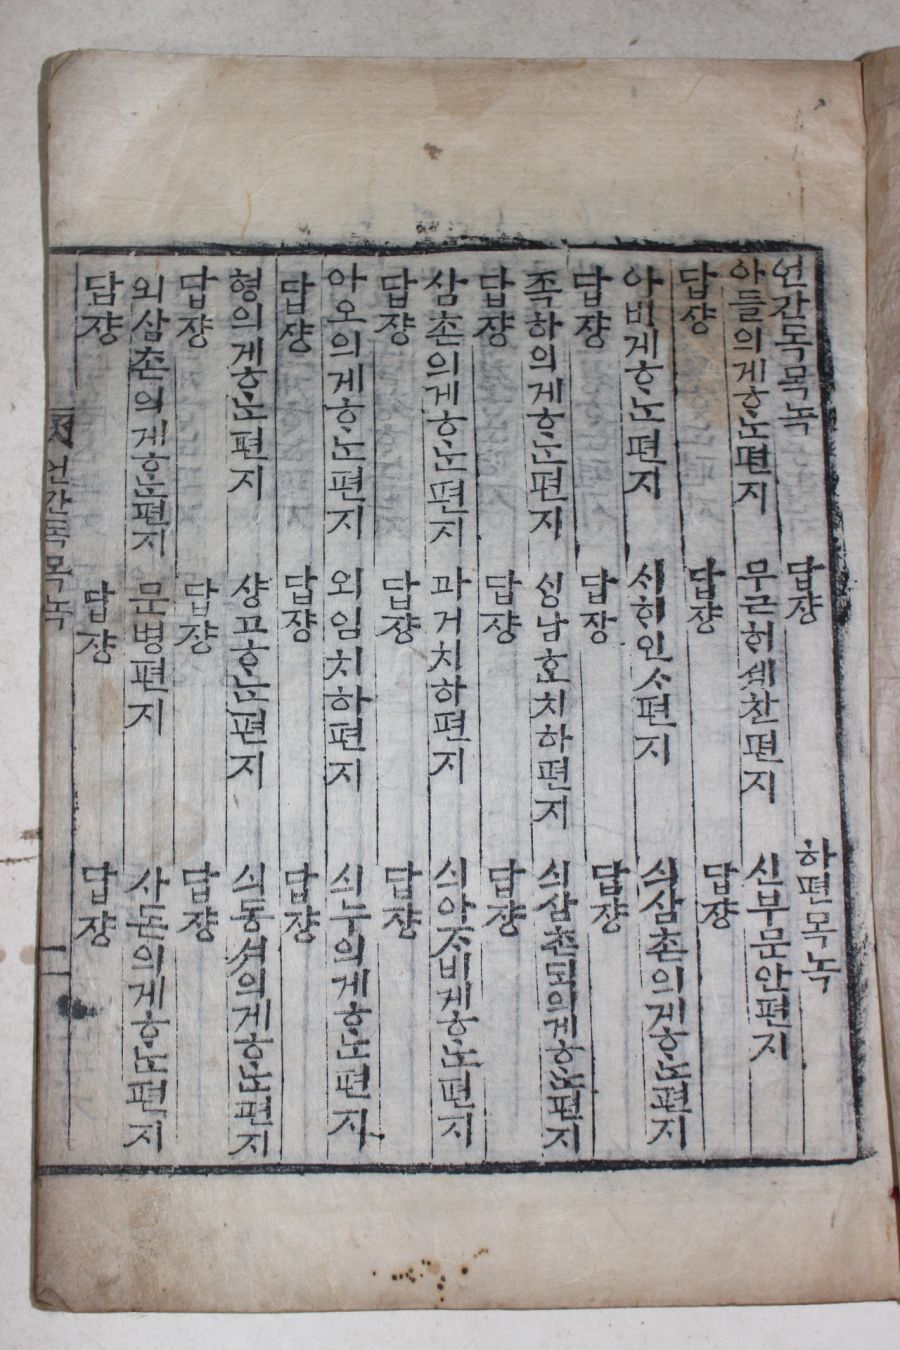 언간독목녹 답쟝 하편목녹
아들의게ᄒᆞᄂᆞᆫ편지 무근ᄒᆡ셰찬편지 신부문안편지
답쟝 답쟝 답쟝
아비게ᄒᆞᄂᆞᆫ편지 ᄉᆡᄒᆡ인ᄉᆞ편지 싀삼촌의게ᄒᆞᄂᆞᆫ편지
답쟝 답장 답쟝
족하의게ᄒᆞᄂᆞᆫ편지 싱남호치하편지 싀삼촌되의게ᄒᆞᄂᆞᆫ편지
답쟝 답쟝 답쟝
삼촌의게ᄒᆞᄂᆞᆫ편지 과거치하편지 싀아ᄌᆞ비게ᄒᆞᄂᆞᆫ편지
답쟝 답쟝 답쟝
아오의게ᄒᆞᄂᆞᆫ편지 외임치하편지 싀누의게ᄒᆞᄂᆞᆫ편지
답쟝 답쟝 답쟝
형의게ᄒᆞᄂᆞᆫ편지 샹고ᄒᆞᄂᆞᆫ편지 싀동셔의게ᄒᆞᄂᆞᆫ편지
답쟝 답쟝 답쟝
외삼촌의게ᄒᆞᄂᆞᆫ편지 문병편지 사돈의게ᄒᆞᄂᆞᆫ편지
답쟝 답쟝 답쟝
언간독목녹